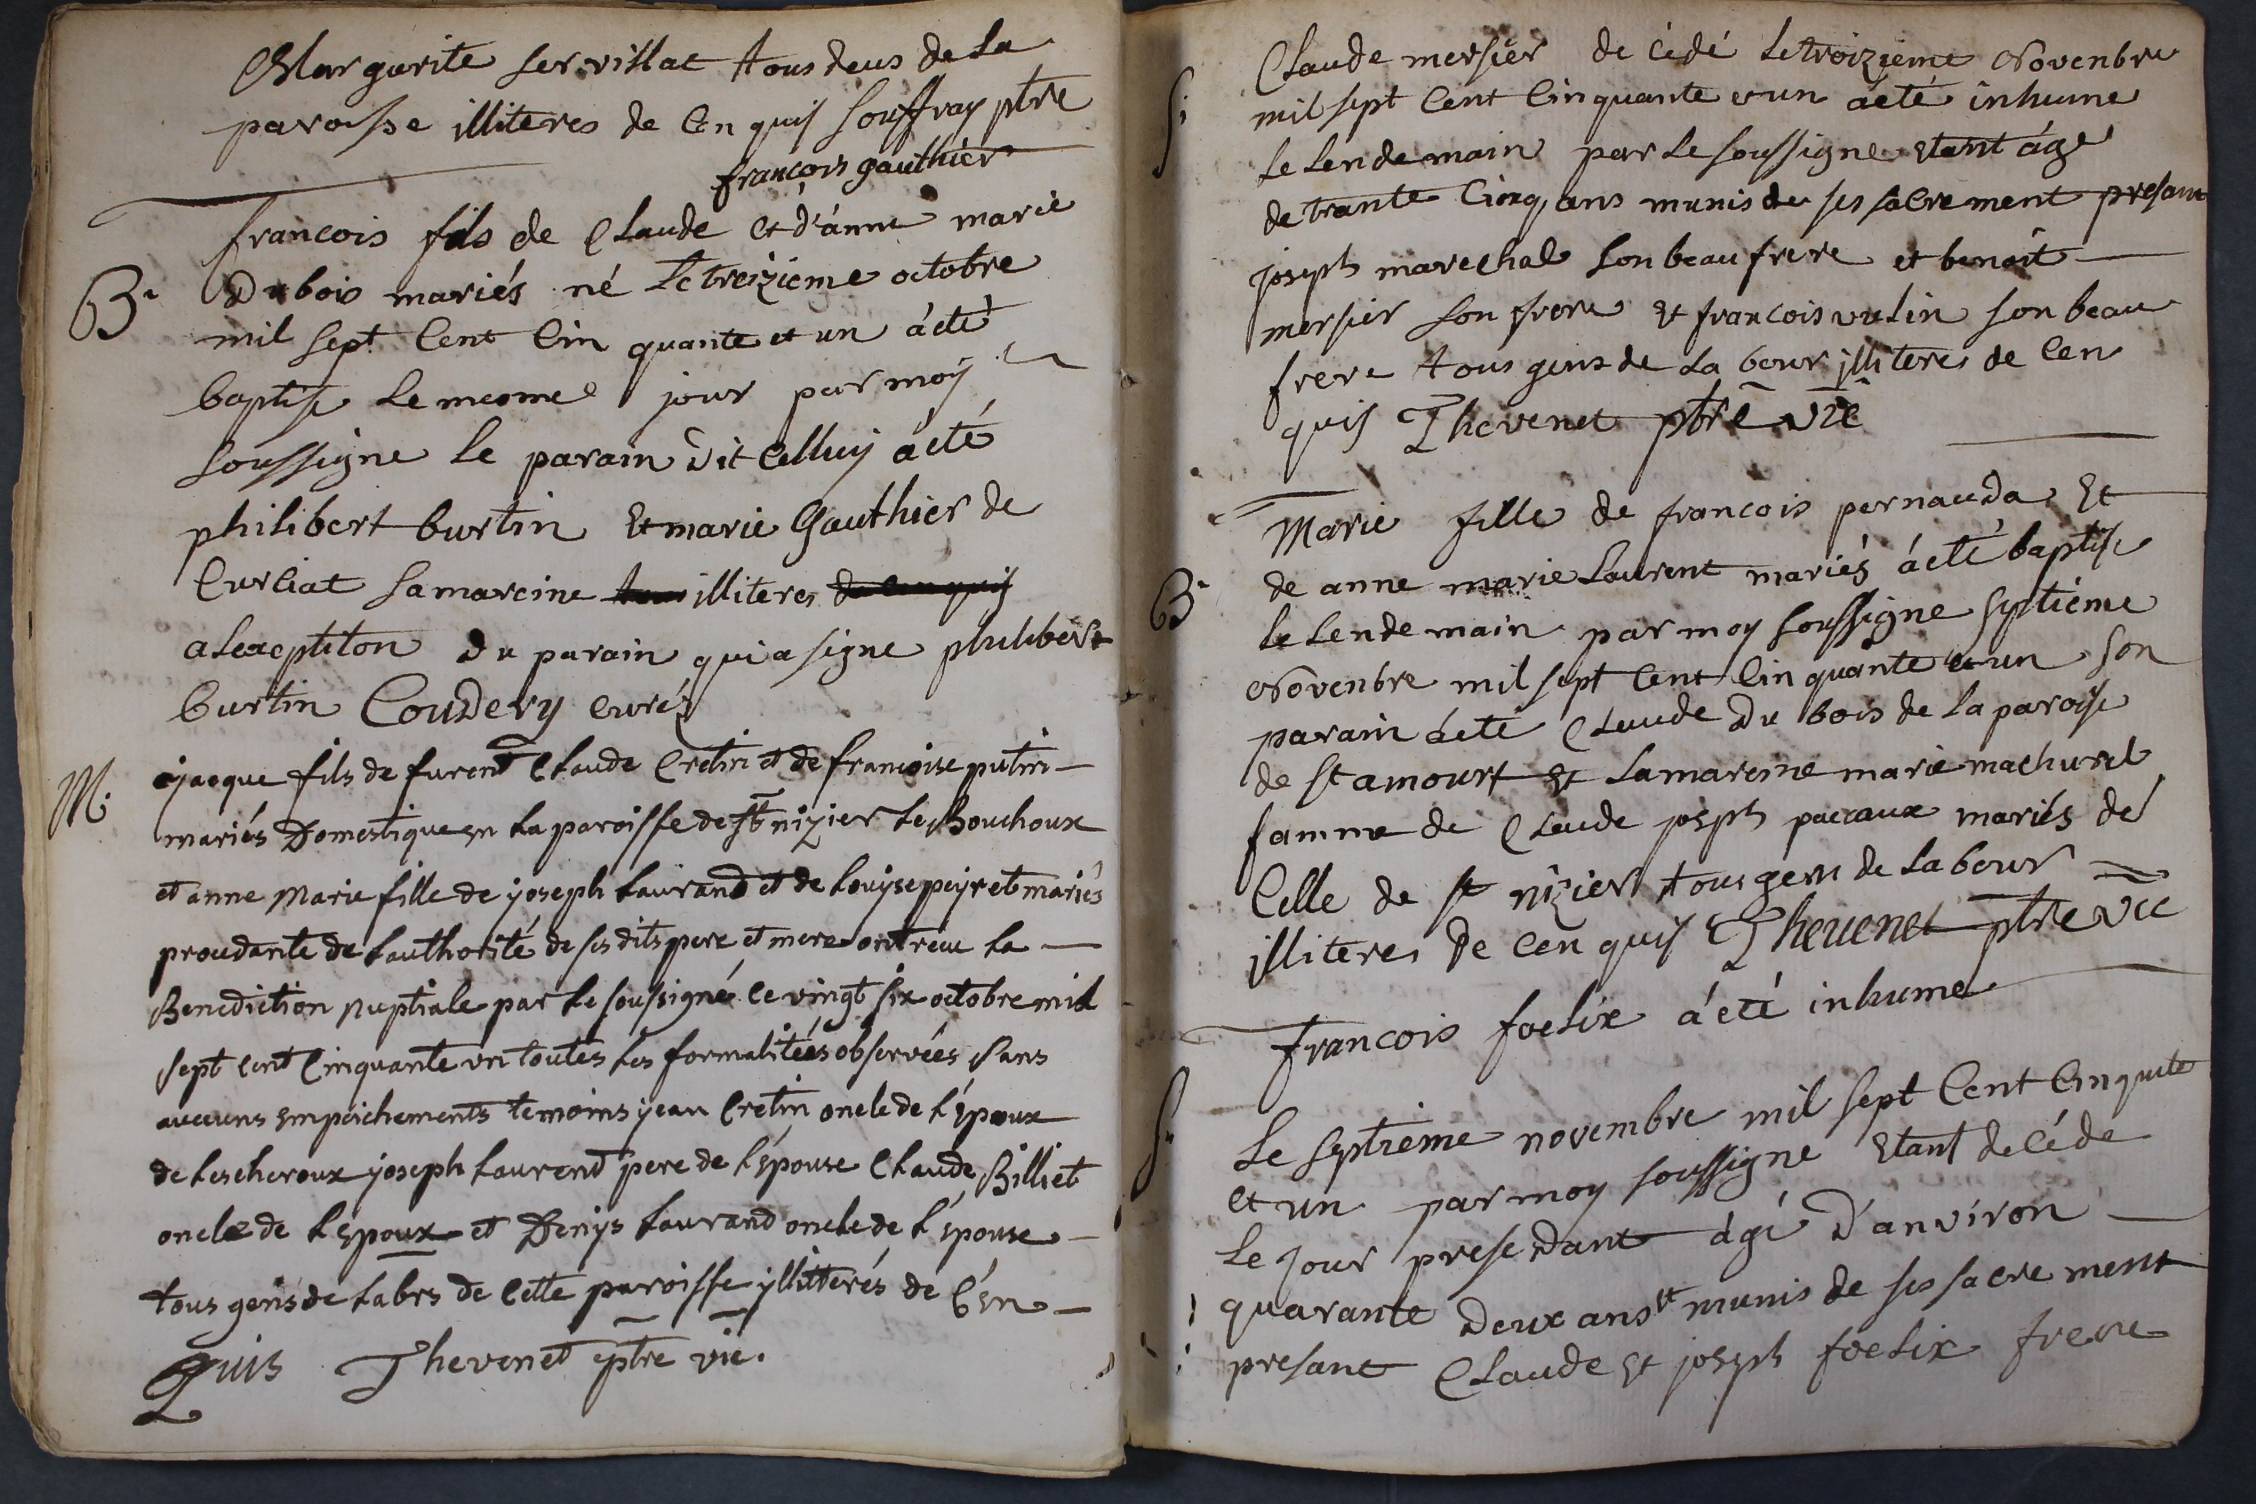 Margarite servillat tous deus de la
paroisse illiteres de Cen quis Souffray ptre
françois gauthier
francois fils de Claude et d'ánne marie
B. Dubois mariés né le treizieme octobre
mil sept Cent Cin quante et un áeté
baptise le mesme jour par moy
soussigne le parain dit Celluy áeté
philibert burtin Et marie Gauthier de
Curciat sa mareine illiteres
a lexeptiton du parain qui a signe philibert
burtin Coudery curé
M. jacque fils de furent Claude Cretin et de francoise putin
mariés Domestique en la paroisse de st nizier le Bouchoux
et anne Marie fille de joseph Laurand et de Louyse peyret mariés
proudante de lauthorité de ses dits pere et mere ont reçu la
Benediction nuptiale par le soussigné le vingt six octobre mil
sept cent Cinquante vn toutes les formalitées observées sans
aucuns empeichements temoins jean Cretin oncle de l'Epoux
de Lescheroux joseph Laurent pere de l'épouse Claude Billiet
oncle de l'epoux et Denys Laurand oncle de l'épouse
tous gens de labrs de Cette paroisse yllitterés de Cén
Quis Thevenet ptre vic.
S. Claude mersier de cédé le troizieme Novenbre
mil sept Cent Cinquante et un áeté inhume
le lendemain par le soussigne etant áge
de trante Cinq ans munis de ses sacrement presant
joseph marechal son beau frere et benoit
mersier son frere Et francois vulin son beau
frere tous gens de la bour illiteres de Cen
quis Thevenet ptre vic
Marie fille de francois pernauda Et
B. de anne marie Laurent mariés áeté baptise
le lendemain par moy soussigne septiéme
Novenbre mil sept Cent Cin quante et un son
parain áeté Claude Du bois de la paroise
de st amourt Et la mareine marie machurat
famme de Claude joseph pacaux mariés de
Celle de st nizier tous gens de la bour
illiteres de Cen quis Thevenet ptre vic
francois foelix áeté inhume
S. Le septieme novembre mil sept Cent Cinquite
et un par moy soussigne Etant decéde
le jour presedant ágé d'anviron
quarante Deux ans et munis de ses sacre ment
presant Claude Et joseph foelix frere